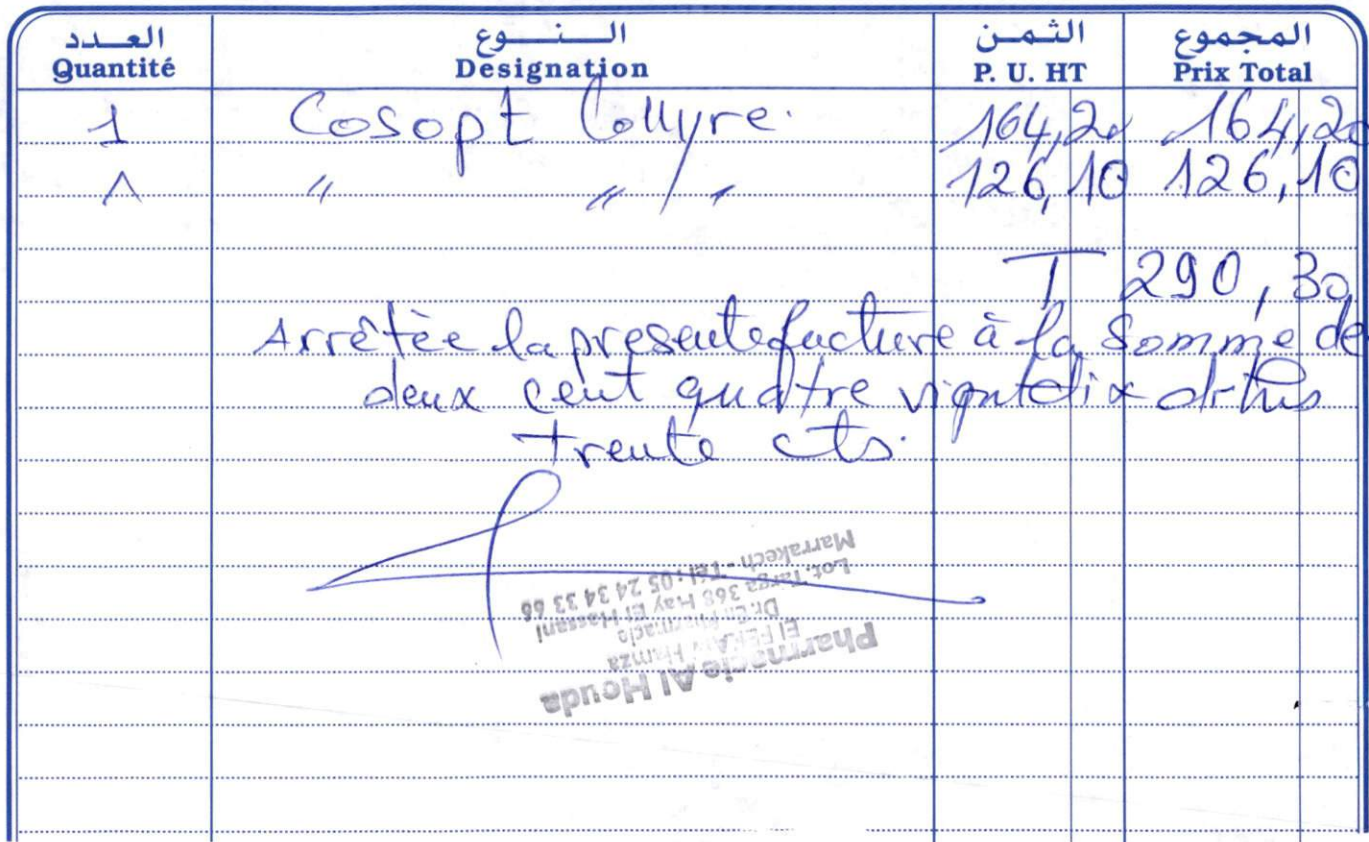 العدد النوع الثمن المجموع
Quantité Designation P. U. HT Prix Total
1 Cosopt Collyre. 164,20 164,20
1 " " " 126,10 126,10
T 290,30
Arrêtée la presente facture à la Somme de
deux cent quatre vignt dix dirhs
trente cts.
Pharmacie Al Houda
El FEKAK Hamza
Dr. En Pharmacie
Lot. Targa 368 Hay El Hassani
Marrakech - Tél : 05 24 34 33 66